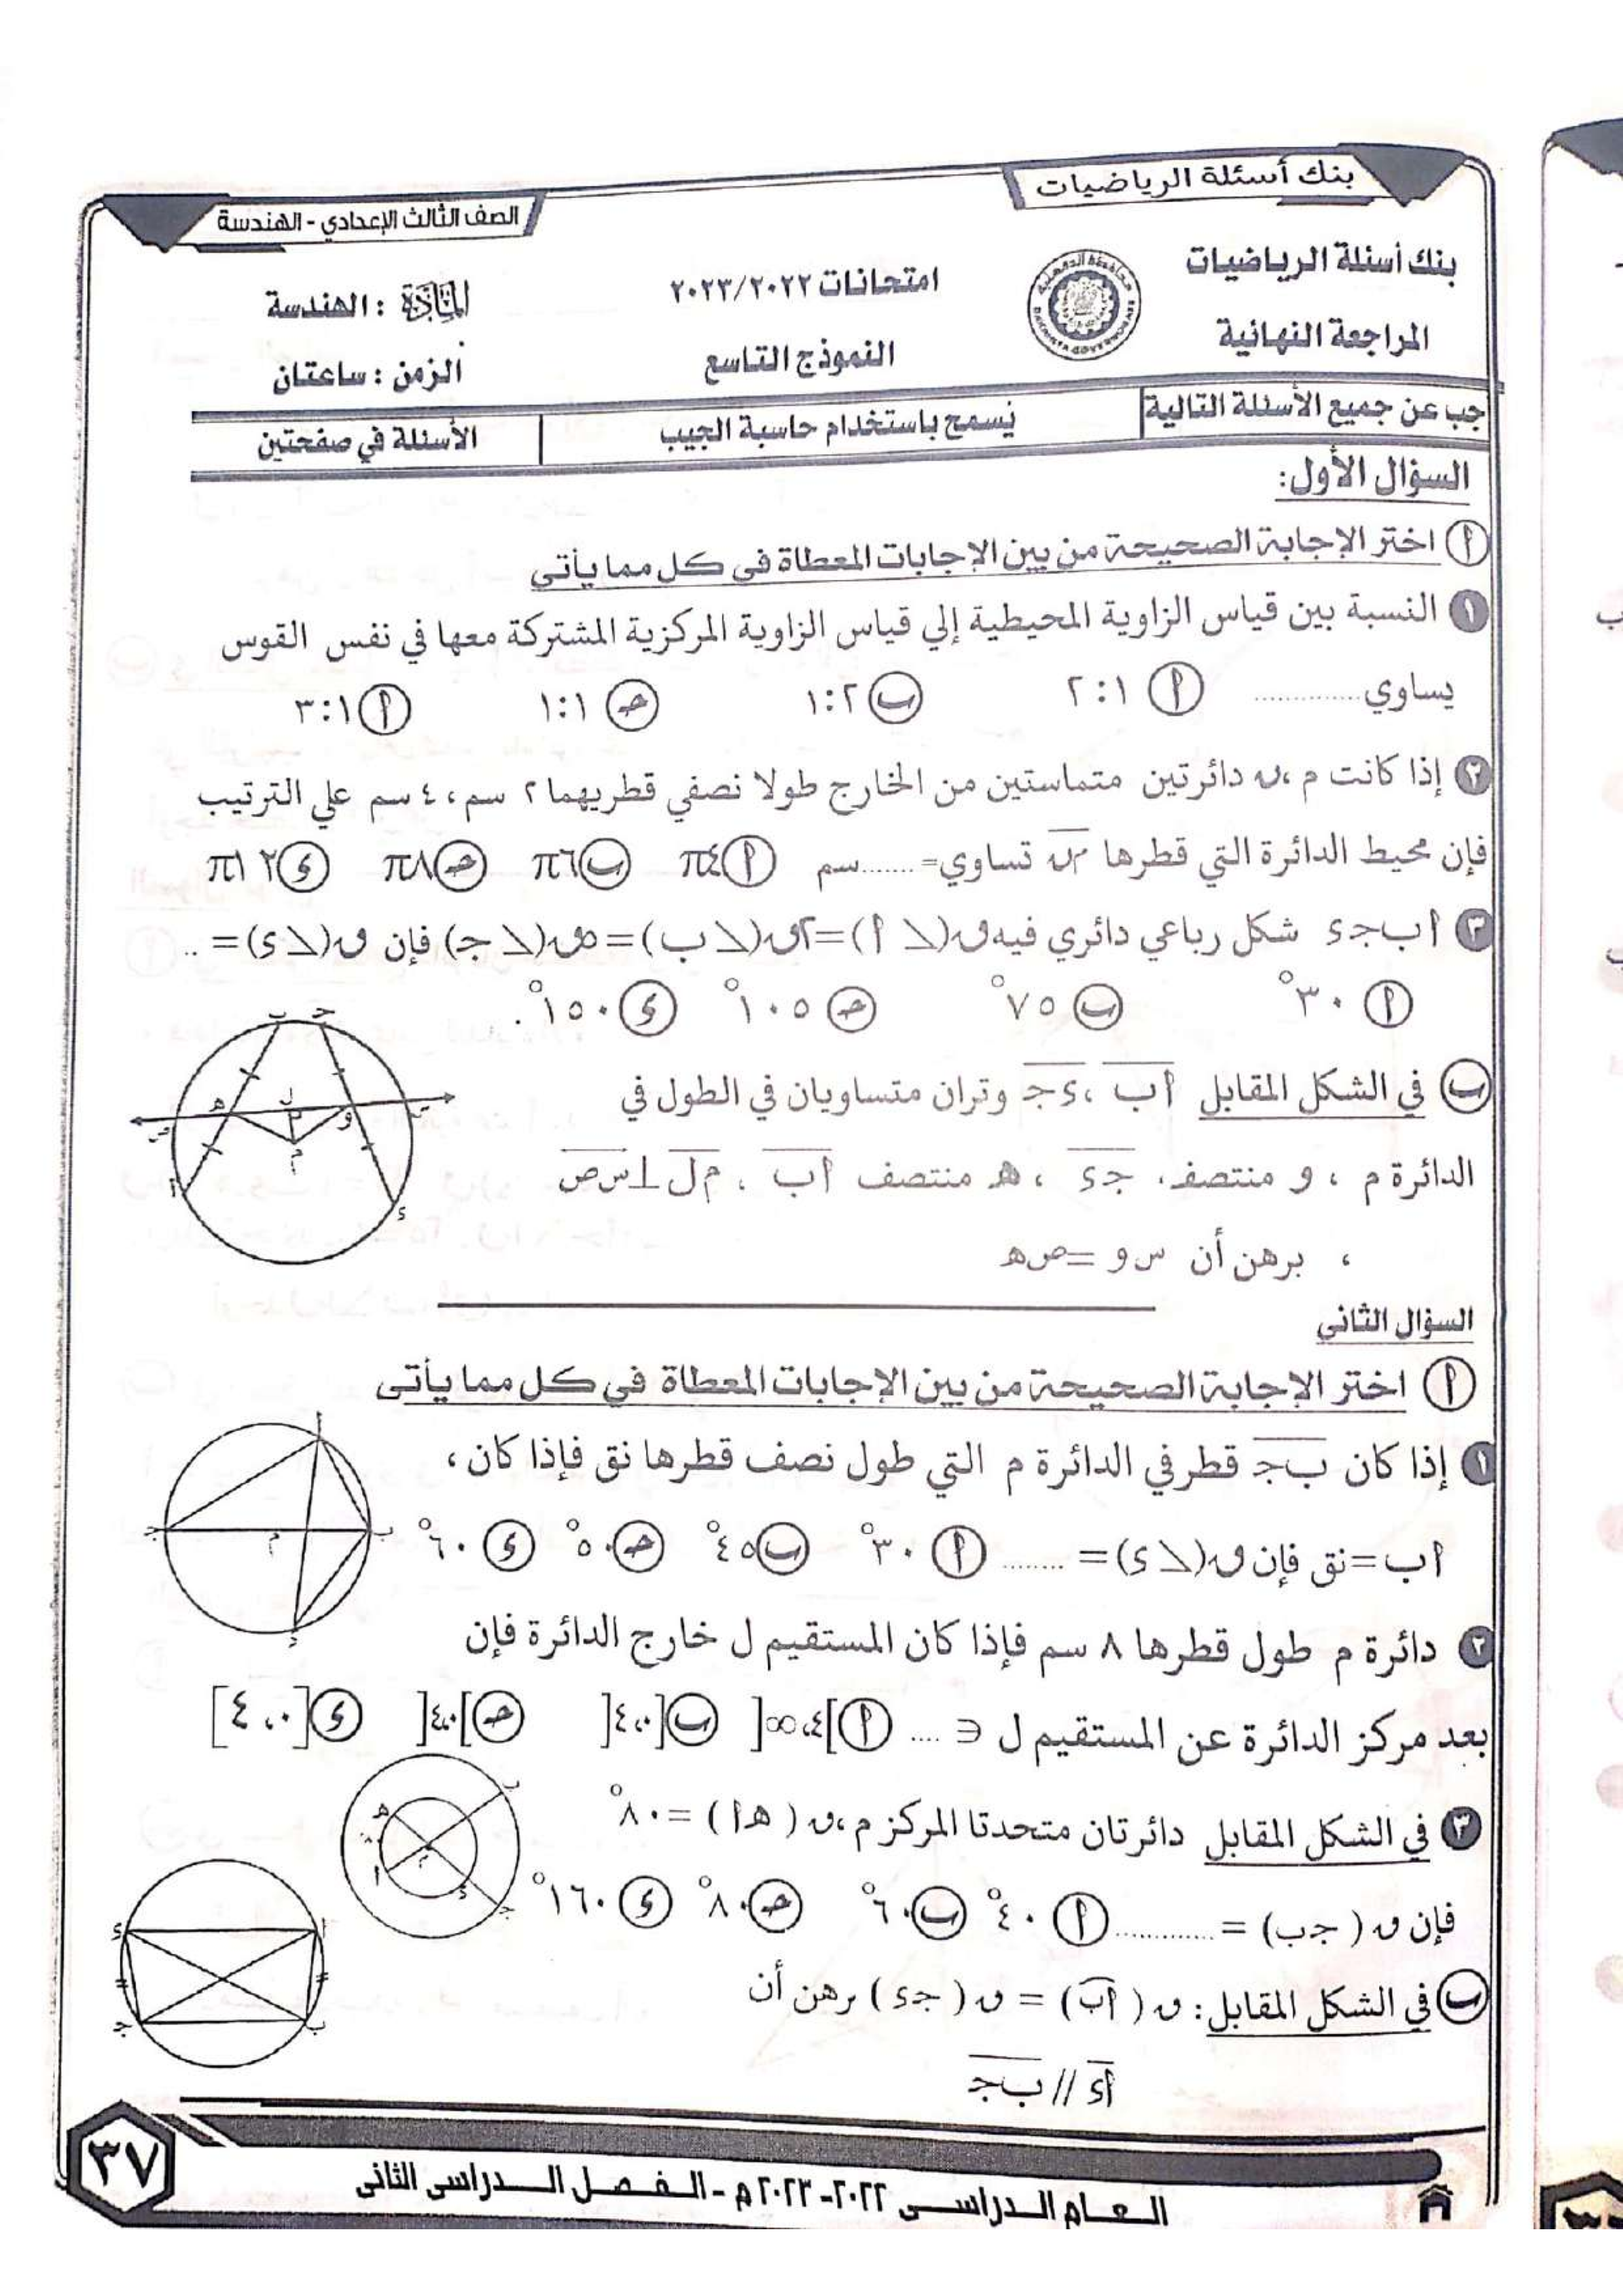 بنك أسئلة الرياضيات
الصف الثالث الإعدادي - الهندسة
بنك أسئلة الرياضيات
امتحانات ٢٠٢٣/٢٠٢٢
المادة : الهندسة
المراجعة النهائية
النموذج التاسع
الزمن : ساعتان
جب عن جميع الأسئلة التالية
يسمح باستخدام حاسبة الجيب
الأسئلة في صفحتين
السؤال الأول:
أ اختر الإجابة الصحيحة من بين الإجابات المعطاة في كل مما يأتي
١ النسبة بين قياس الزاوية المحيطية إلي قياس الزاوية المركزية المشتركة معها في نفس القوس
يساوي ............ أ ٢:١ ب ١:٢ جـ ١:١ أ ٣:١
٢ إذا كانت م ، ن دائرتين متماستين من الخارج طولا نصفي قطريهما ٢ سم ، ٤ سم علي الترتيب
فإن محيط الدائرة التي قطرها م ن تساوي= ........ سم أ π٤ ب π٦ جـ π٨ ء π١٢
٣ أ ب جـ ء شكل رباعي دائري فيه ق(∠ أ) = ٢ق(∠ ب) = ٥ق(∠ جـ) فإن ق(∠ ء) = ..
أ ٣٠° ب ٧٥° جـ ١٠٥° ء ١٥٠° .
ب في الشكل المقابل أب ، ء جـ وتران متساويان في الطول في
الدائرة م ، و منتصف جـ ء ، هـ منتصف أب ، م ل ⊥ س ص
، برهن أن س و = ص هـ
السؤال الثاني
أ اختر الإجابة الصحيحة من بين الإجابات المعطاة في كل مما يأتي
١ إذا كان ب جـ قطر في الدائرة م التي طول نصف قطرها نق فإذا كان ،
أ ب = نق فإن ق(∠ ء) = ........ أ ٣٠° ب ٤٥° جـ ٥٠° ء ٦٠°
٢ دائرة م طول قطرها ٨ سم فإذا كان المستقيم ل خارج الدائرة فإن
بعد مركز الدائرة عن المستقيم ل ∈ .... أ ]٤،∞[ ب [٤،٠[ جـ ]٤،٠[ ء [٤،٠]
٣ في الشكل المقابل دائرتان متحدتا المركز م ، ق ( هـ أ ) = ٨٠°
فإن ق ( جـ ب ) = ............ أ ٤٠° ب ٦٠° جـ ٨٠° ء ١٦٠°
ب في الشكل المقابل : ق ( أب ) = ق ( جـ ء ) برهن أن
أ ء // ب جـ
٣٧
العام الدراسي ٢٠٢٢- ٢٠٢٣ م - الفصل الدراسي الثاني